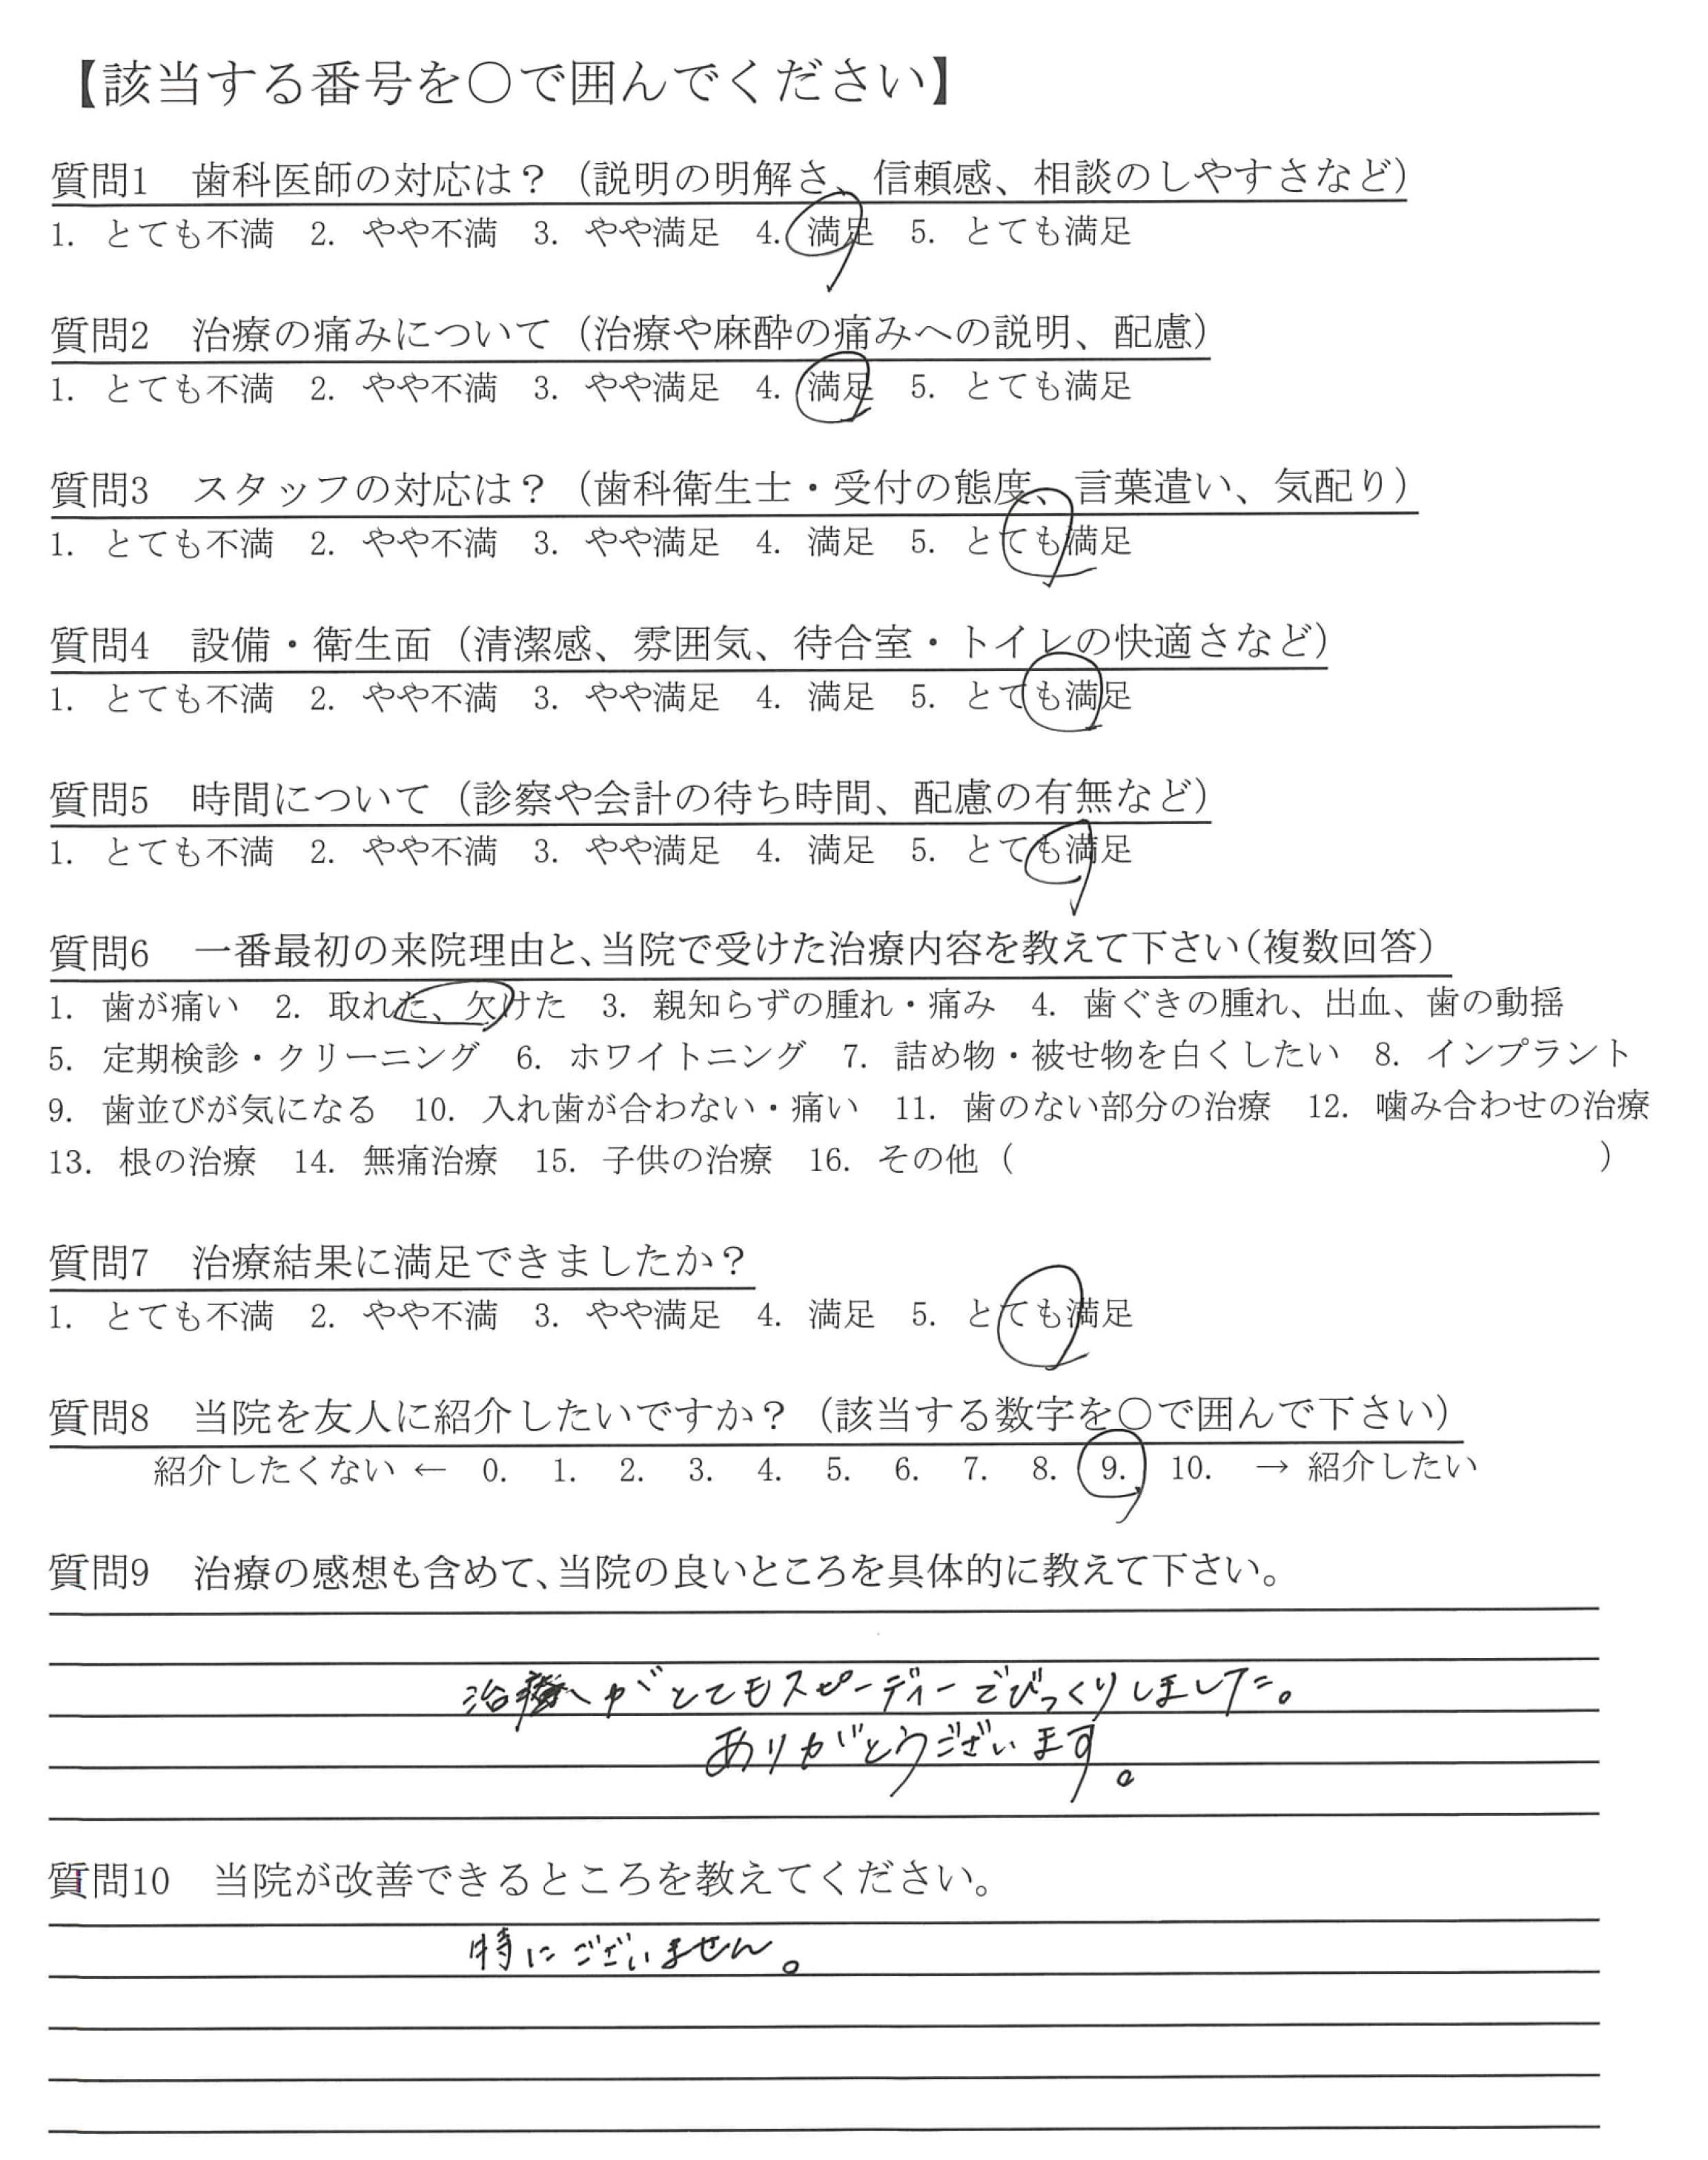 【該当する番号を〇で囲んでください】
質問1　歯科医師の対応は？（説明の明解さ、信頼感、相談のしやすさなど）
1. とても不満　2. やや不満　3. やや満足　4. 満足　5. とても満足
質問2　治療の痛みについて（治療や麻酔の痛みへの説明、配慮）
1. とても不満　2. やや不満　3. やや満足　4. 満足　5. とても満足
質問3　スタッフの対応は？（歯科衛生士・受付の態度、言葉遣い、気配り）
1. とても不満　2. やや不満　3. やや満足　4. 満足　5. とても満足
質問4　設備・衛生面（清潔感、雰囲気、待合室・トイレの快適さなど）
1. とても不満　2. やや不満　3. やや満足　4. 満足　5. とても満足
質問5　時間について（診察や会計の待ち時間、配慮の有無など）
1. とても不満　2. やや不満　3. やや満足　4. 満足　5. とても満足
質問6　一番最初の来院理由と、当院で受けた治療内容を教えて下さい（複数回答）
1. 歯が痛い　2. 取れた、欠けた　3. 親知らずの腫れ・痛み　4. 歯ぐきの腫れ、出血、歯の動揺
5. 定期検診・クリーニング　6. ホワイトニング　7. 詰め物・被せ物を白くしたい　8. インプラント
9. 歯並びが気になる　10. 入れ歯が合わない・痛い　11. 歯のない部分の治療　12. 噛み合わせの治療
13. 根の治療　14. 無痛治療　15. 子供の治療　16. その他（　　　　　　　　）
質問7　治療結果に満足できましたか？
1. とても不満　2. やや不満　3. やや満足　4. 満足　5. とても満足
質問8　当院を友人に紹介したいですか？（該当する数字を〇で囲んで下さい）
紹介したくない ← 0.　1.　2.　3.　4.　5.　6.　7.　8.　9.　10.　→ 紹介したい
質問9　治療の感想も含めて、当院の良いところを具体的に教えて下さい。
治療がとてもスピーディーでびっくりしました。
ありがとうございます。
質問10　当院が改善できるところを教えてください。
特にございません。